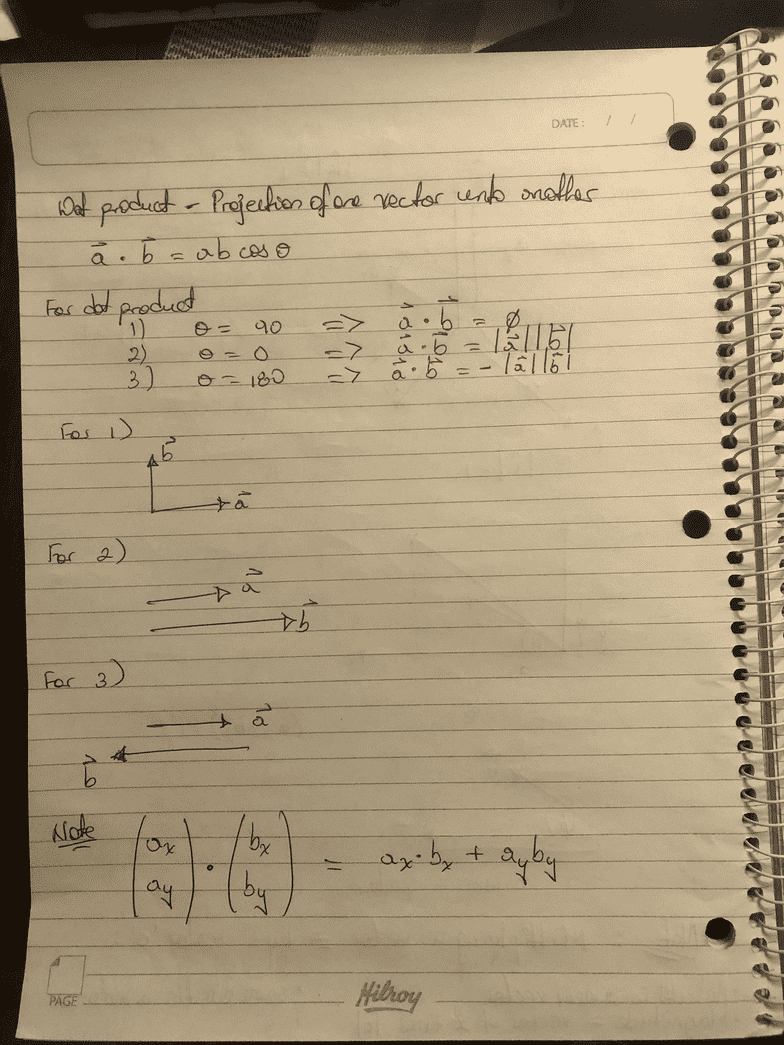 DATE: / /
Dot product - Projection of one vector unto another
a⃗ . b⃗ = ab cos θ
For dot product
1) θ = 90 => a⃗ . b⃗ = ∅
2) θ = 0 => a⃗ . b⃗ = |a⃗||b⃗|
3) θ = 180 => a⃗ . b⃗ = - |a⃗||b⃗|
For 1)
b⃗
a⃗
For 2)
a⃗
b⃗
For 3)
a⃗
b⃗
Note (aₓ a_y) . (bₓ b_y) = aₓ . bₓ + a_y b_y
PAGE
Hilroy